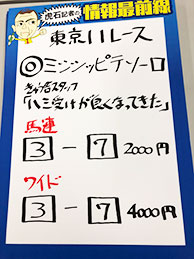 虎石記者の
情報最前線
東京11レース
◎ミシシッピテソーロ
「ハミ受けが良くなってきた」
馬連
3-7 2000円
ワイド
3-7 4000円